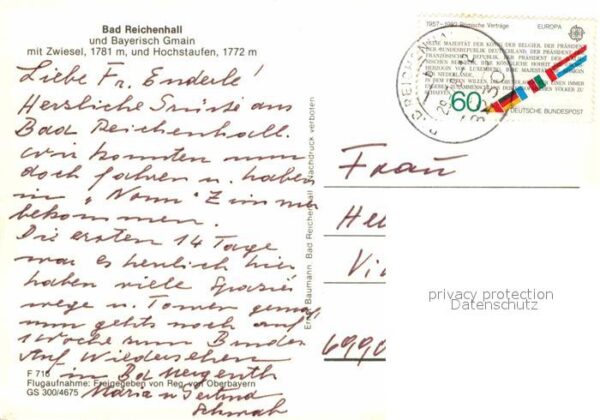 Bad Reichenhall
und Bayerisch Gmain
mit Zwiesel, 1781 m, und Hochstaufen, 1772 m
Liebe Fr. Enderle!
Herzliche Grüße aus
Bad Reichenhall.
wir konnten nun
doch fahren u. haben
in "Nonn" Zimmer
bekommen.
Die ersten 14 Tage
war es herrlich hier
haben viele Spazier
wege u. Touren gemacht
nun gehts noch auf
1 Woche zum Bruder
Auf Wiedersehen
in Bd Mergenth
Maria u Gertrud
Schwab
F 715
Flugaufnahme: Freigegeben von Reg. von Oberbayern
GS 300/4675
Ernst Baumann Bad Reichenhall Nachdruck verboten
1957-1982 Römische Verträge EUROPA
60
DEUTSCHE BUNDESPOST
Frau
He
Vi
6990
privacy protection
Datenschutz